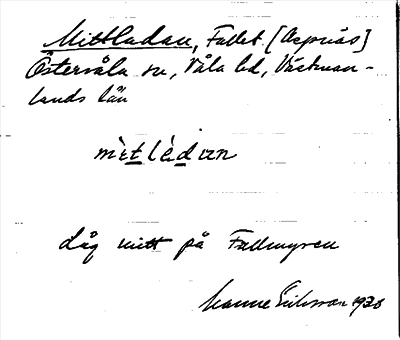 Mittladan, Fallet [Aspnäs]
Östervåla sn, Våla hd, Västman-
lands län
mìtlàdan
Låg mitt på Fallmyren
Manne Eriksson 1928